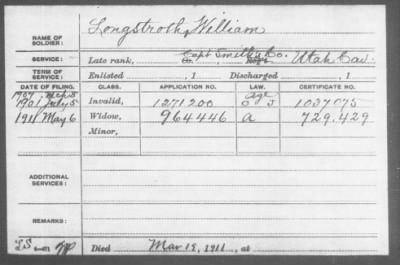 Longstroth, William
NAME OF SOLDIER:
Capt Smith's Co.
SERVICE: Late rank, Utah Cav.
TERM OF SERVICE: Enlisted , 1 , Discharged , 1
DATE OF FILING. CLASS. APPLICATION NO. LAW. CERTIFICATE NO.
1907 Age
1901 July 5 Invalid, 1271200 1037075
1911 May 6 Widow, 964446 a 729.429
Minor,
ADDITIONAL SERVICES:
REMARKS:
Died Mar 19, 1911, at